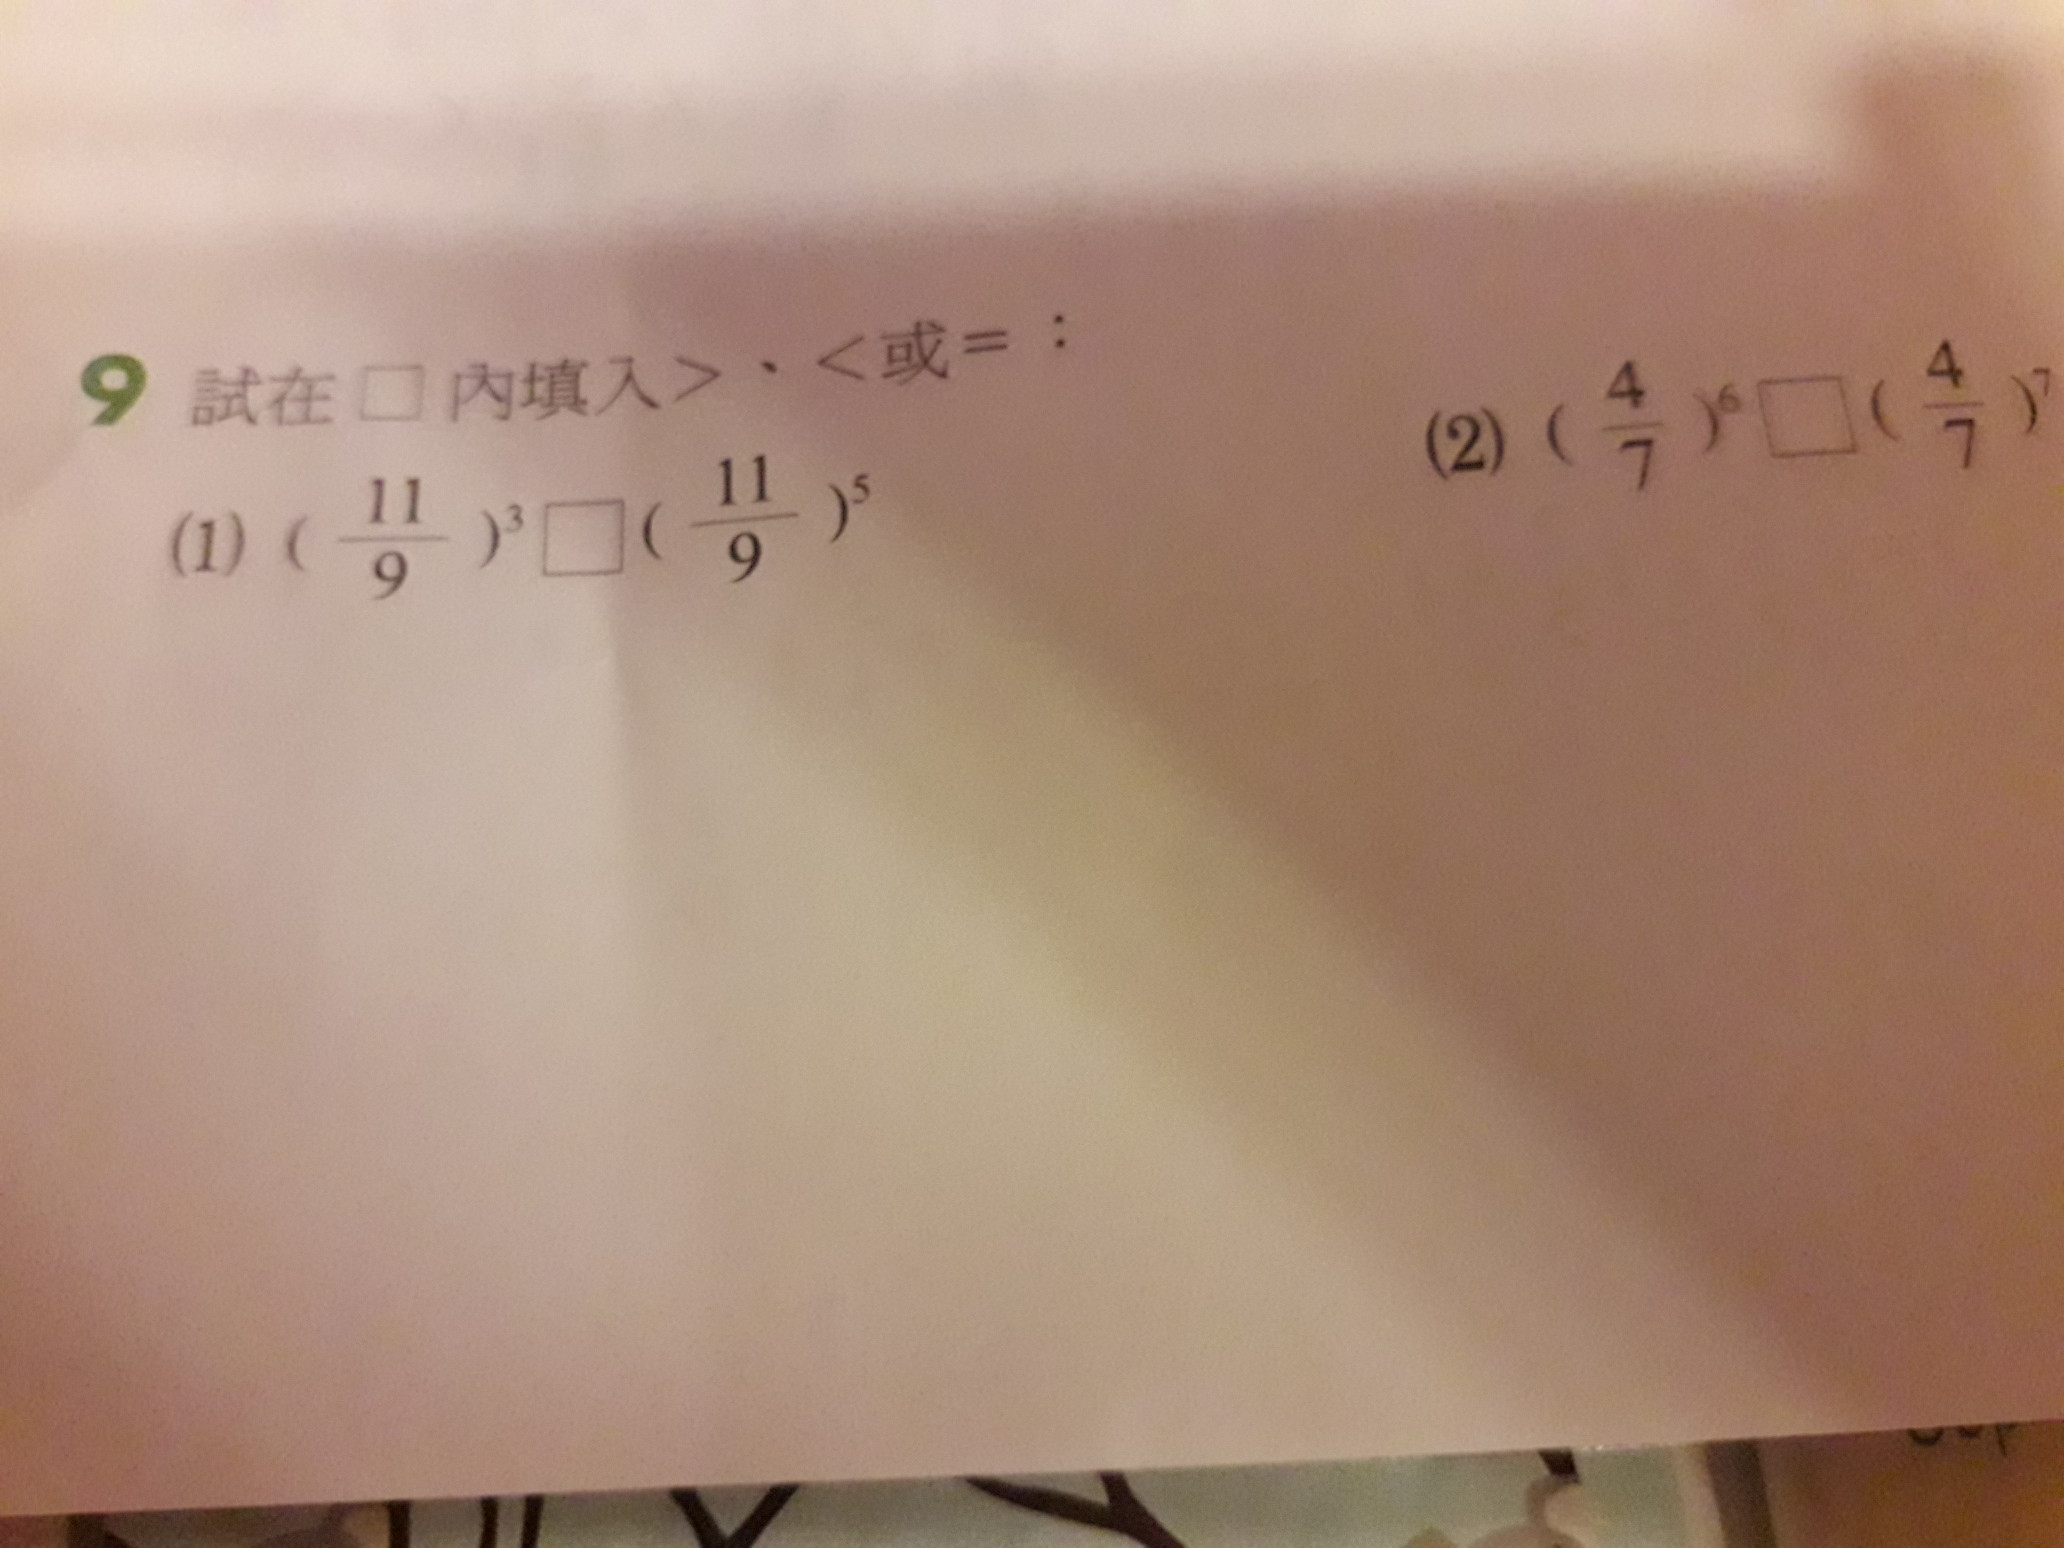 9 試在□內填入>、<或=：
(1) ( 11/9 )³□( 11/9 )⁵
(2) ( 4/7 )⁶□( 4/7 )⁷